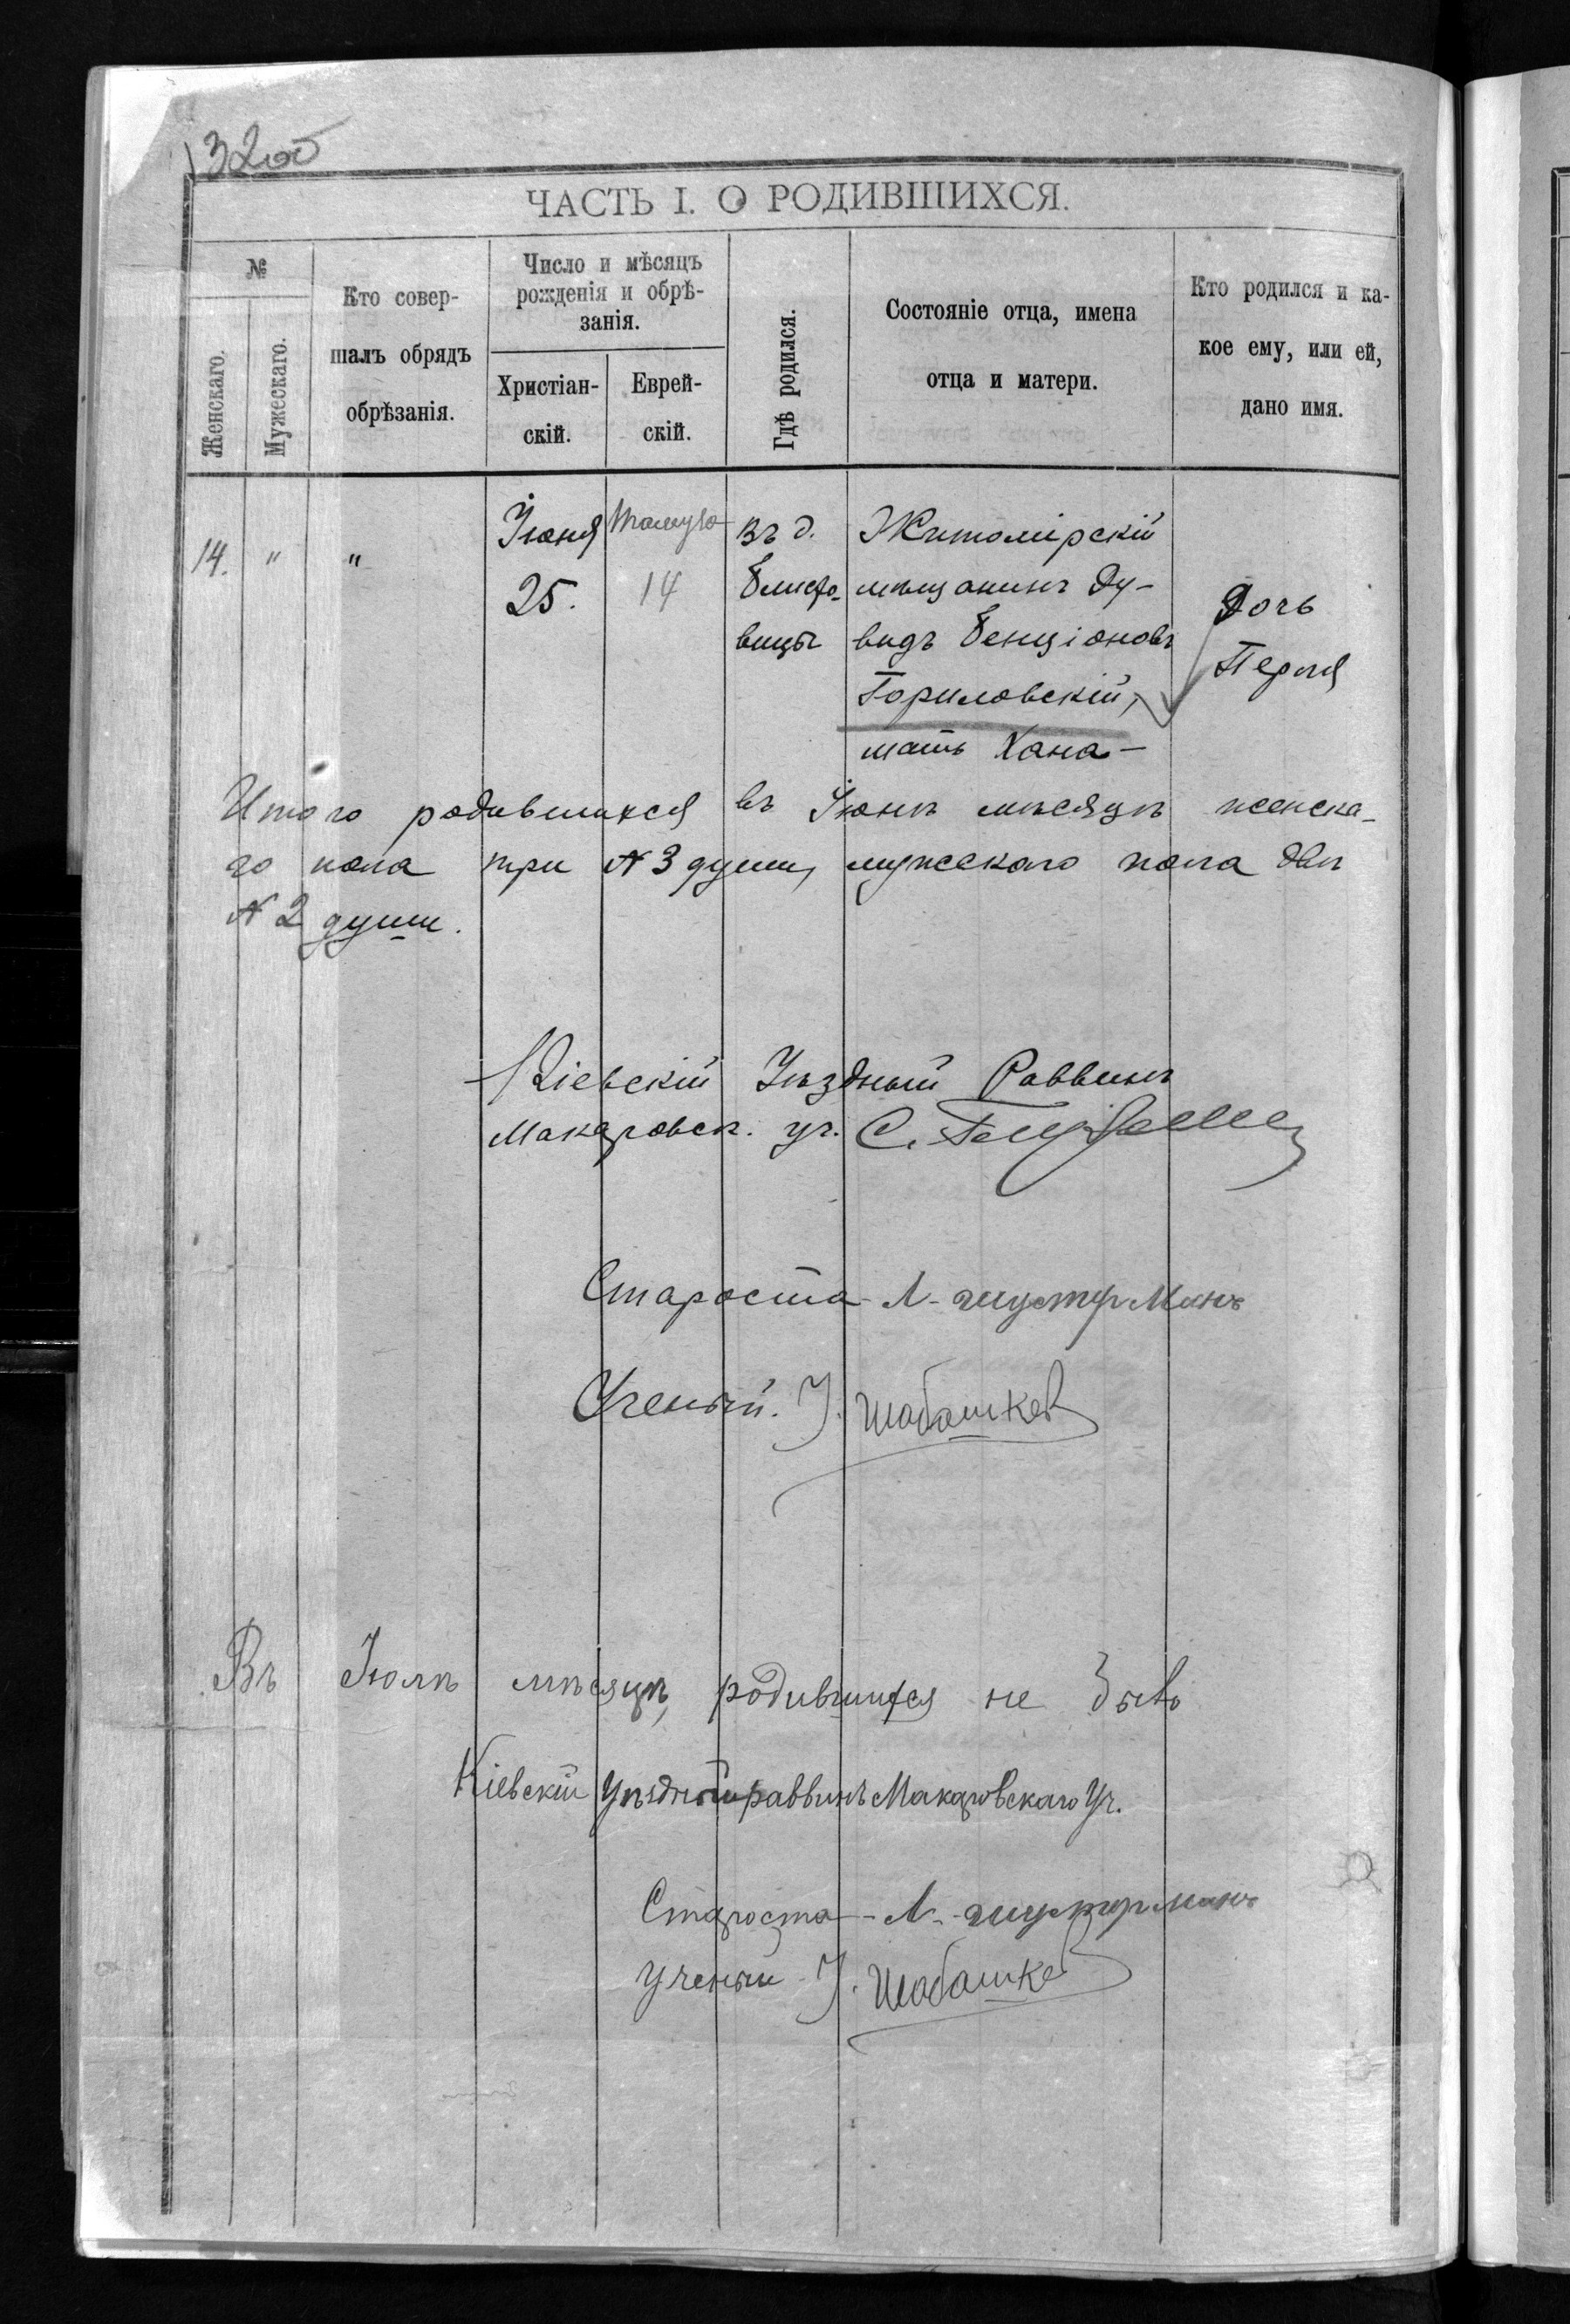 32об
ЧАСТЬ I. О РОДИВШИХСЯ.
№
Женскаго.
Мужескаго.
Кто совер-
шалъ обрядъ
обрѣзанія.
Число и мѣсяцъ
рожденія и обрѣ-
занія.
Христіан-
скій.
Еврей-
скій.
Гдѣ родился.
Состояніе отца, имена
отца и матери.
Кто родился и ка-
кое ему, или ей,
дано имя.
14. " "
Іюня
25.
Тамуза
14
въ д.
вицы
Житомірскій
мѣщанинъ Ду-
видъ Бенціоновъ
Гориловскій,
мать Хана -
Дочь
Перля
Итого родившихся въ Іюнѣ мѣсяцѣ женска-
го пола три № 3 души, мужескаго пола двѣ
№ 2 души.
Кіевскій Уѣздный Раввинъ
Макаровск. уч. С.
Староста - Л. Шустерманъ
Ученый. І.
Въ Іюлѣ мѣсяцѣ родившихся не было
Кіевскій Уѣздный раввинъ Макаровскаго Уч.
Староста - Л. Шустерманъ
Ученый І.